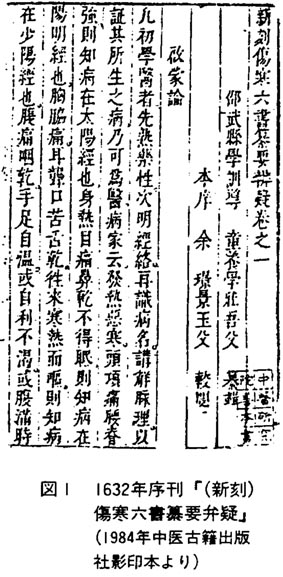 新刻傷寒六書纂要辨疑卷之一
邵武縣學訓導 童養學壯吾父 纂輯
本庠 余 璟景玉父 較閱
啟蒙論
凡初學醫者先熟藥性次明經絡再識病名講解脉理以
証其所生之病乃可爲醫病家云發熱惡寒頭項痛腰脊
強則知病在太陽經也身熱目痛鼻乾不得眠則知病在
陽明經也胸脇痛耳聾口苦舌乾徃來寒熱而嘔則知病
在少陽經也腹痛咽乾手足自溫或自利不渴或腹滿時
図1 1632年序刊『(新刻)
傷寒六書纂要弁疑』
(1984年中医古籍出版
社影印本より)